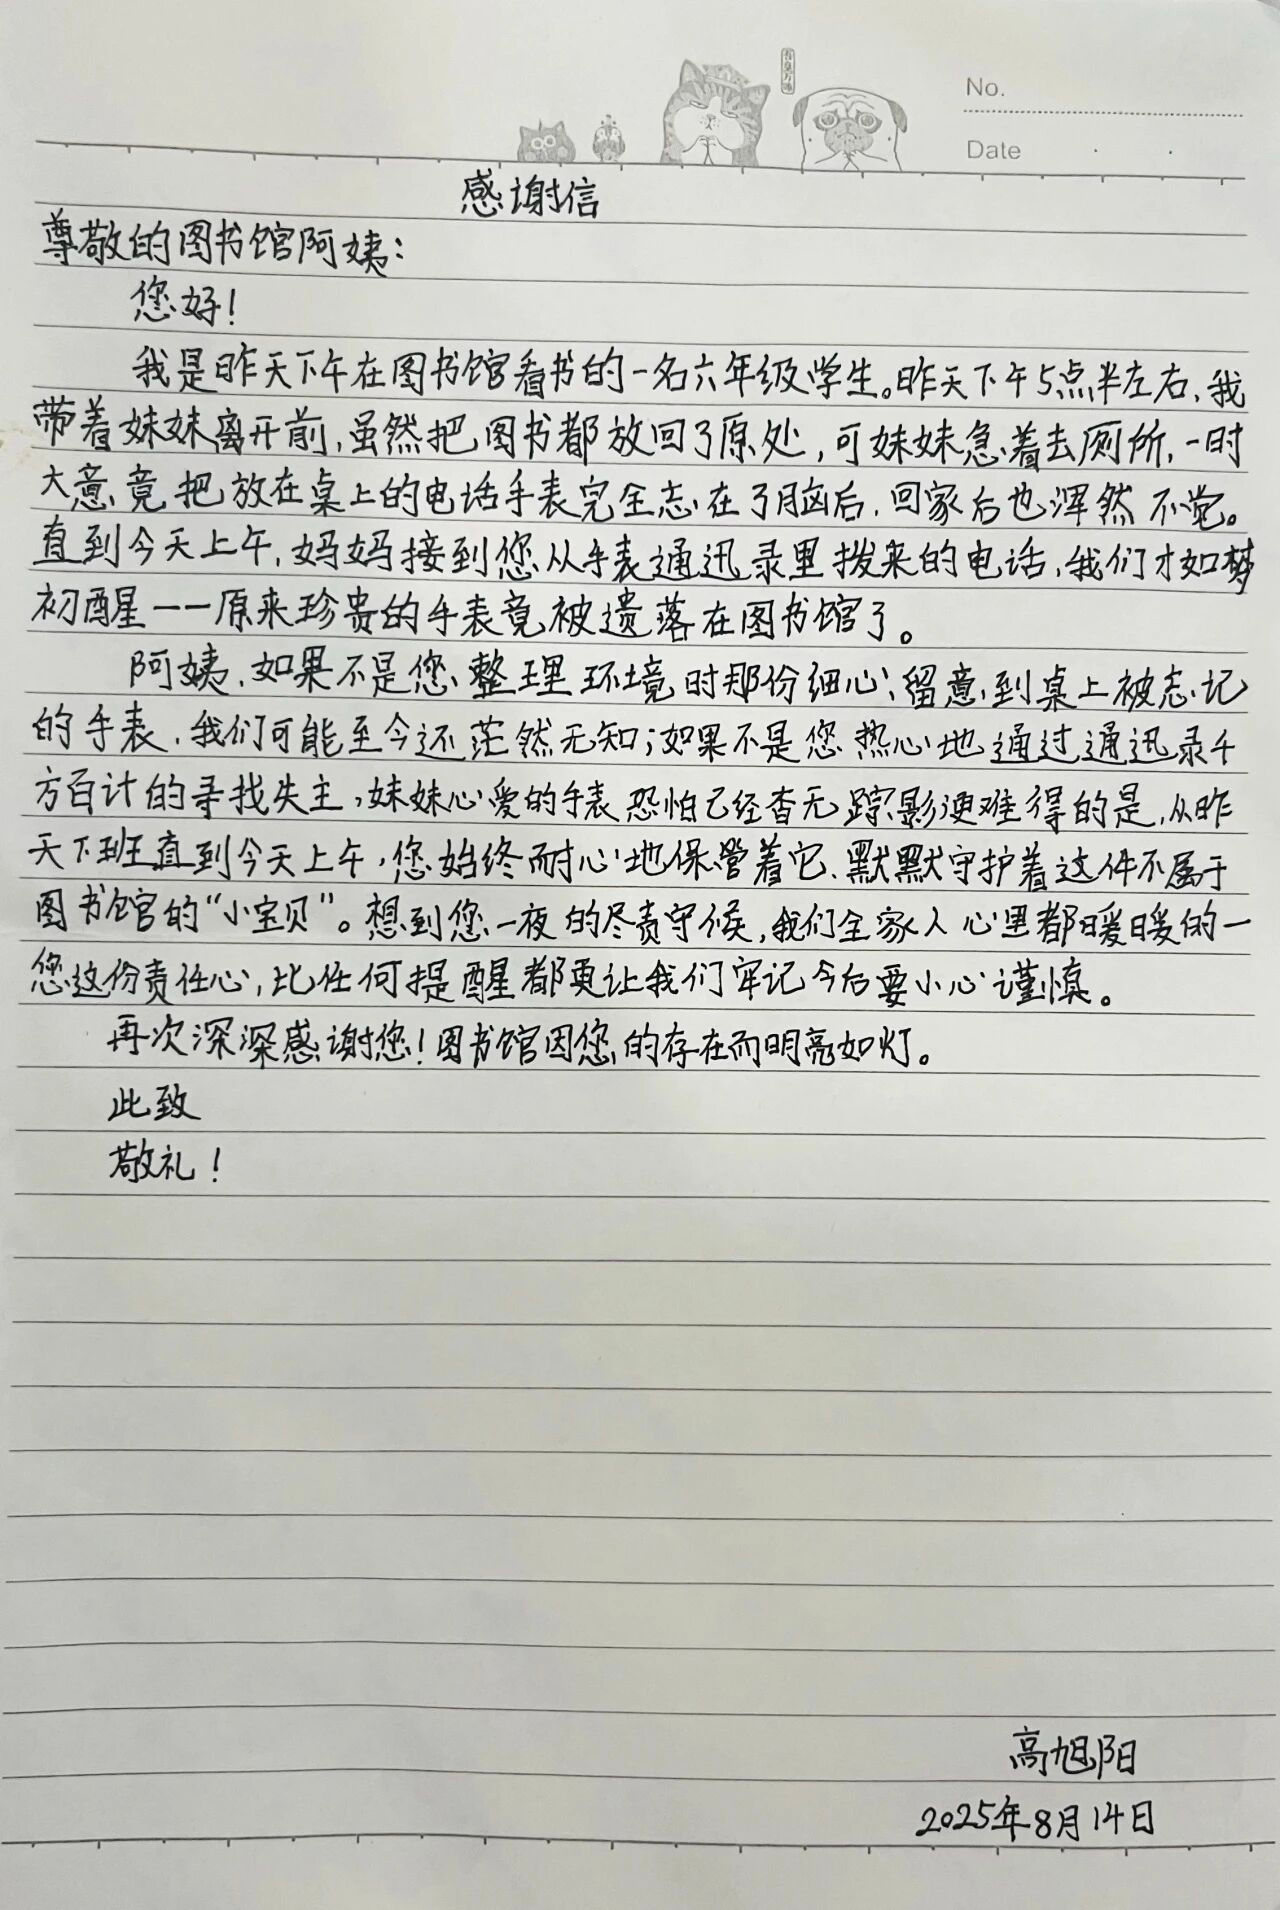 No.
Date
感谢信
尊敬的图书馆阿姨：
您好！
我是昨天下午在图书馆看书的一名六年级学生。昨天下午5点半左右，我
带着妹妹离开前，虽然把图书都放回了原处，可妹妹急着去厕所，一时
大意竟把放在桌上的电话手表完全忘在了脑后，回家后也浑然不觉。
直到今天上午，妈妈接到您从手表通迅录里拨来的电话，我们才如梦
初醒——原来珍贵的手表竟被遗落在图书馆了。
阿姨，如果不是您整理环境时那份细心，留意到桌上被忘记
的手表，我们可能至今还茫然无知；如果不是您热心地通过通迅录千
方百计的寻找失主，妹妹心爱的手表恐怕已经杳无踪影更难得的是，从昨
天下班直到今天上午，您始终耐心地保管着它、默默守护着这件不属于
图书馆的“小宝贝”。想到您一夜的尽责守候，我们全家人心里都暖暖的一
您这份责任心，比任何提醒都更让我们牢记今后要小心谨慎。
再次深深感谢您！图书馆因您的存在而明亮如灯。
此致
敬礼！
高旭阳
2025年8月14日